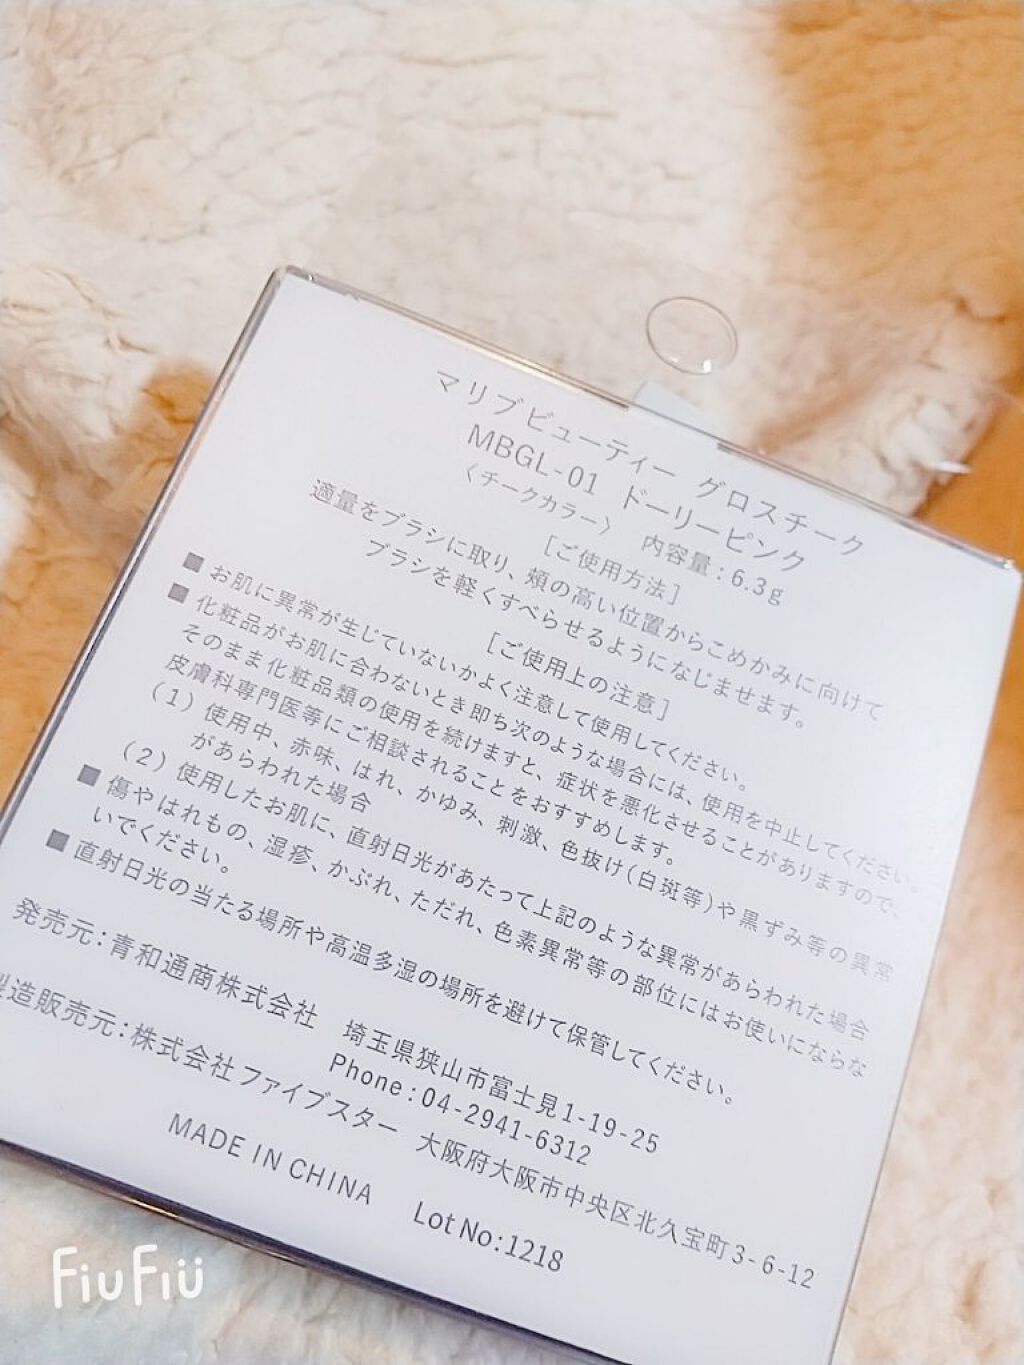 マリブビューティー グロスチーク
MBGL-01 ドーリーピンク
〈チークカラー〉 内容量：6.3g
[ご使用方法]
適量をブラシに取り、頬の高い位置からこめかみに向けて
ブラシを軽くすべらせるようになじませます。
[ご使用上の注意]
■ お肌に異常が生じていないかよく注意して使用してください。
■ 化粧品がお肌に合わないとき即ち次のような場合には、使用を中止してください。
そのまま化粧品類の使用を続けますと、症状を悪化させることがありますので、
皮膚科専門医等にご相談されることをおすすめします。
(1) 使用中、赤味、はれ、かゆみ、刺激、色抜け(白斑等)や黒ずみ等の異常
があらわれた場合
(2) 使用したお肌に、直射日光があたって上記のような異常があらわれた場合
■ 傷やはれもの、湿疹、かぶれ、ただれ、色素異常等の部位にはお使いにならな
いでください。
■ 直射日光の当たる場所や高温多湿の場所を避けて保管してください。
発売元：青和通商株式会社 埼玉県狭山市富士見1-19-25
Phone：04-2941-6312
製造販売元：株式会社ファイブスター 大阪府大阪市中央区北久宝町3-6-12
MADE IN CHINA Lot No:1218
FiuFiu